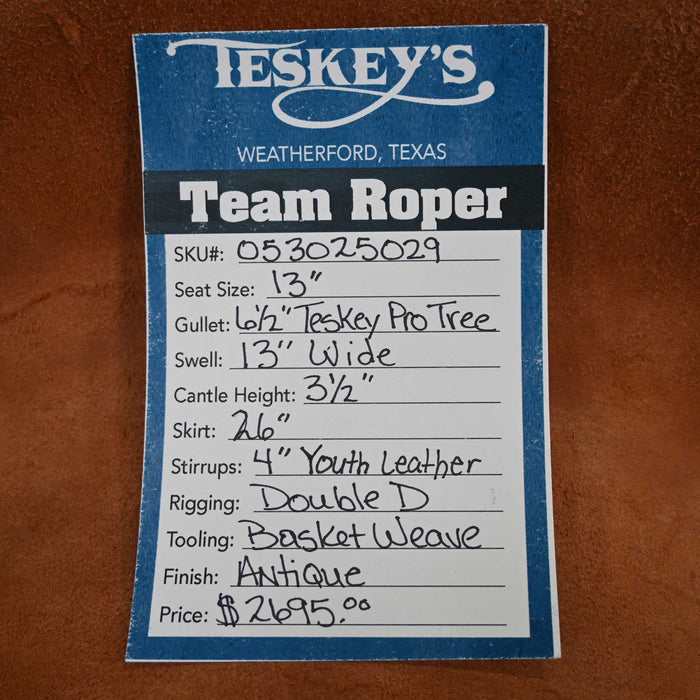 TESKEY'S
WEATHERFORD, TEXAS
Team Roper
SKU#: 053025029
Seat Size: 13"
Gullet: 6½" Teskey Pro Tree
Swell: 13" Wide
Cantle Height: 3½"
Skirt: 26"
Stirrups: 4" Youth Leather
Rigging: Double D
Tooling: Basket Weave
Finish: Antique
Price: $2695.00